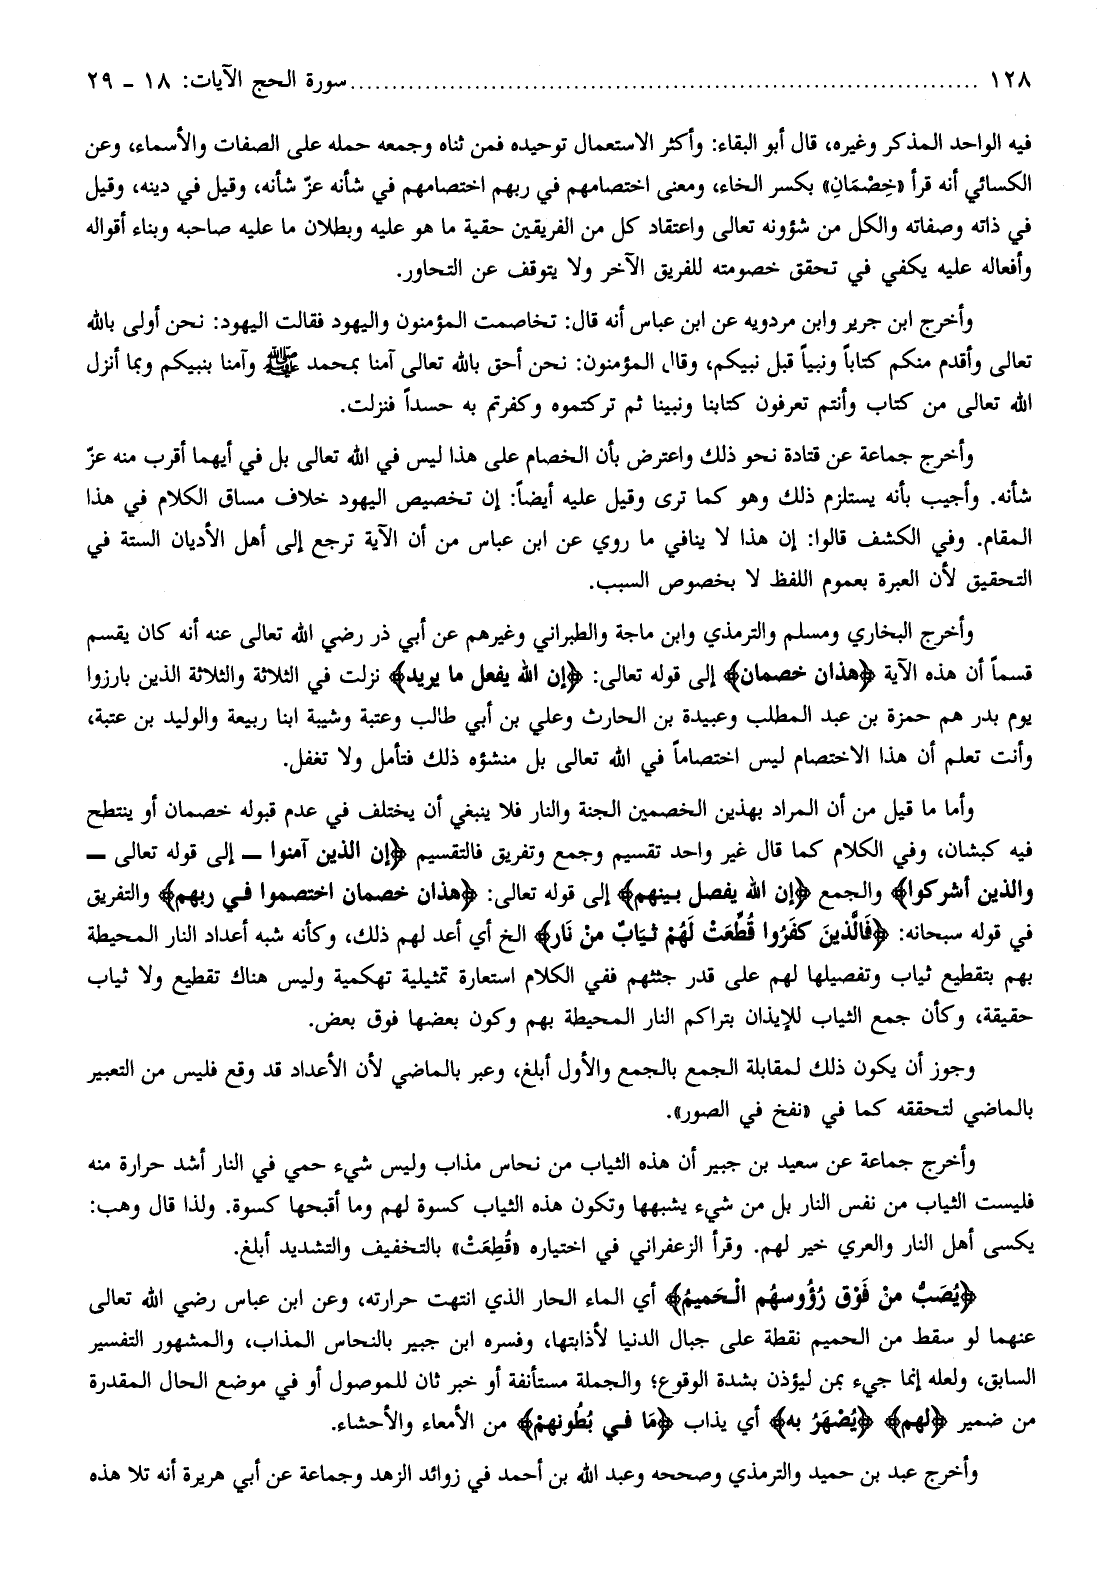 ١٢٨ ........................................................................... سورة الحج الآيات: ١٨ - ٢٩
فيه الواحد المذكر وغيره، قال أبو البقاء: وأكثر الاستعمال توحيده فمن ثناه وجمعه حمله على الصفات والأسماء، وعن
الكسائي أنه قرأ «خِصْمَانِ» بكسر الخاء، ومعنى اختصامهم في ربهم اختصامهم في شأنه عزّ شأنه، وقيل في دينه، وقيل
في ذاته وصفاته والكل من شؤونه تعالى واعتقاد كل من الفريقين حقية ما هو عليه وبطلان ما عليه صاحبه وبناء أقواله
وأفعاله عليه يكفي في تحقق خصومته للفريق الآخر ولا يتوقف عن التحاور.
وأخرج ابن جرير وابن مردويه عن ابن عباس أنه قال: تخاصمت المؤمنون واليهود فقالت اليهود: نحن أولى بالله
تعالى وأقدم منكم كتاباً ونبياً قبل نبيكم، وقال المؤمنون: نحن أحق بالله تعالى آمنا بمحمد ﷺ وآمنا بنبيكم وبما أنزل
الله تعالى من كتاب وأنتم تعرفون كتابنا ونبينا ثم تركتموه وكفرتم به حسداً فنزلت.
وأخرج جماعة عن قتادة نحو ذلك واعترض بأن الخصام على هذا ليس في الله تعالى بل في أيهما أقرب منه عزّ
شأنه. وأجيب بأنه يستلزم ذلك وهو كما ترى وقيل عليه أيضاً: إن تخصيص اليهود خلاف مساق الكلام في هذا
المقام. وفي الكشف قالوا: إن هذا لا ينافي ما روي عن ابن عباس من أن الآية ترجع إلى أهل الأديان الستة في
التحقيق لأن العبرة بعموم اللفظ لا بخصوص السبب.
وأخرج البخاري ومسلم والترمذي وابن ماجة والطبراني وغيرهم عن أبي ذر رضي الله تعالى عنه أنه كان يقسم
قسماً أن هذه الآية ﴿هذان خصمان﴾ إلى قوله تعالى: ﴿إن الله يفعل ما يريد﴾ نزلت في الثلاثة والثلاثة الذين بارزوا
يوم بدر هم حمزة بن عبد المطلب وعبيدة بن الحارث وعلي بن أبي طالب وعتبة وشيبة ابنا ربيعة والوليد بن عتبة،
وأنت تعلم أن هذا الاختصام ليس اختصاماً في الله تعالى بل منشؤه ذلك فتأمل ولا تغفل.
وأما ما قيل من أن المراد بهذين الخصمين الجنة والنار فلا ينبغي أن يختلف في عدم قبوله خصمان أو ينتطح
فيه كبشان، وفي الكلام كما قال غير واحد تقسيم وجمع وتفريق فالتقسيم ﴿إن الذين آمنوا ــ إلى قوله تعالى ــ
والذين أشركوا﴾ والجمع ﴿إن الله يفصل بينهم﴾ إلى قوله تعالى: ﴿هذان خصمان اختصموا في ربهم﴾ والتفريق
في قوله سبحانه: ﴿فَالَّذينَ كفَرُوا قُطِّعَتْ لَهُمْ ثيَابٌ منْ نَار﴾ الخ أي أعد لهم ذلك، وكأنه شبه أعداد النار المحيطة
بهم بتقطيع ثياب وتفصيلها لهم على قدر جثثهم ففي الكلام استعارة تمثيلية تهكمية وليس هناك تقطيع ولا ثياب
حقيقة، وكأن جمع الثياب للإيذان بتراكم النار المحيطة بهم وكون بعضها فوق بعض.
وجوز أن يكون ذلك لمقابلة الجمع بالجمع والأول أبلغ، وعبر بالماضي لأن الأعداد قد وقع فليس من التعبير
بالماضي لتحققه كما في «نفخ في الصور».
وأخرج جماعة عن سعيد بن جبير أن هذه الثياب من نحاس مذاب وليس شيء حمي في النار أشد حرارة منه
فليست الثياب من نفس النار بل من شيء يشبهها وتكون هذه الثياب كسوة لهم وما أقبحها كسوة. ولذا قال وهب:
يكسى أهل النار والعري خير لهم. وقرأ الزعفراني في اختياره «قُطِعَتْ» بالتخفيف والتشديد أبلغ.
﴿يُصَبُّ منْ فَوْق رُؤُوسهُم الْحَميمُ﴾ أي الماء الحار الذي انتهت حرارته، وعن ابن عباس رضي الله تعالى
عنهما لو سقط من الحميم نقطة على جبال الدنيا لأذابتها، وفسره ابن جبير بالنحاس المذاب، والمشهور التفسير
السابق، ولعله إنما جيء بمن ليؤذن بشدة الوقوع؛ والجملة مستأنفة أو خبر ثان للموصول أو في موضع الحال المقدرة
من ضمير ﴿لهم﴾ ﴿يُصْهَرُ به﴾ أي يذاب ﴿مَا في بُطُونهمْ﴾ من الأمعاء والأحشاء.
وأخرج عبد بن حميد والترمذي وصححه وعبد الله بن أحمد في زوائد الزهد وجماعة عن أبي هريرة أنه تلا هذه